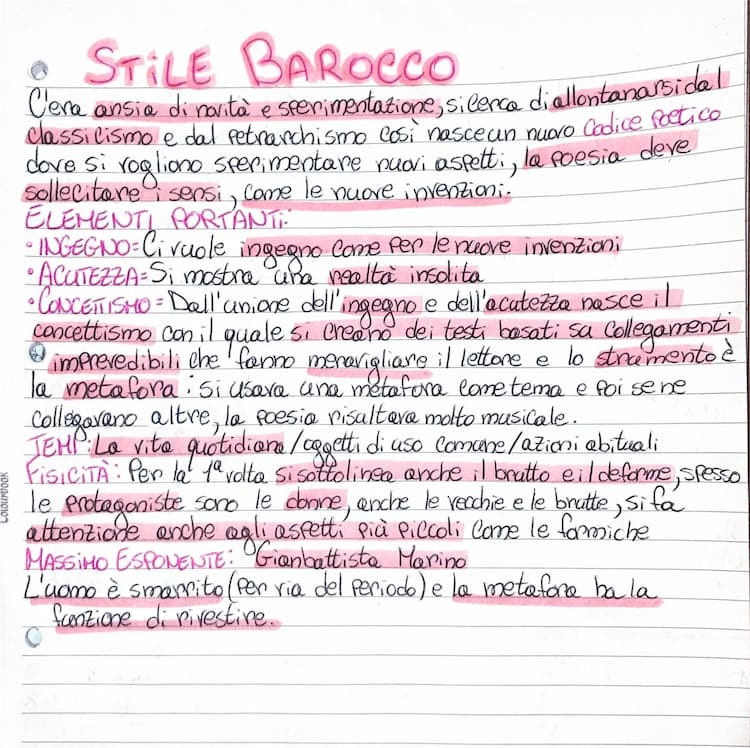 STILE BAROCCO
C'era ansia di novità e sperimentazione, si cerca di allontanarsi dal
classicismo e dal petrarchismo così nasce un nuovo codice poetico
dove si vogliono sperimentare nuovi aspetti, la poesia deve
sollecitare i sensi, come le nuove invenzioni.
ELEMENTI PORTANTI:
• INGEGNO = Ci vuole ingegno come per le nuove invenzioni
• ACUTEZZA = Si mostra una realtà insolita
• CONCETTISMO = Dall'unione dell'ingegno e dell'acutezza nasce il
concettismo con il quale si creano dei testi basati su collegamenti
imprevedibili che fanno meravigliare il lettore e lo strumento è
la metafora : si usava una metafora come tema e poi se ne
collegavano altre, la poesia risultava molto musicale.
TEMI: La vita quotidiana/oggetti di uso comune/azioni abituali
FISICITÀ: Per la 1ª volta si sottolinea anche il brutto e il deforme, spesso
le protagoniste sono le donne, anche le vecchie e le brutte, si fa
attenzione anche agli aspetti più piccoli come le formiche
MASSIMO ESPONENTE: Gianbattista Marino
L'uomo è smarrito (per via del periodo) e la metafora ha la
funzione di rivestire.